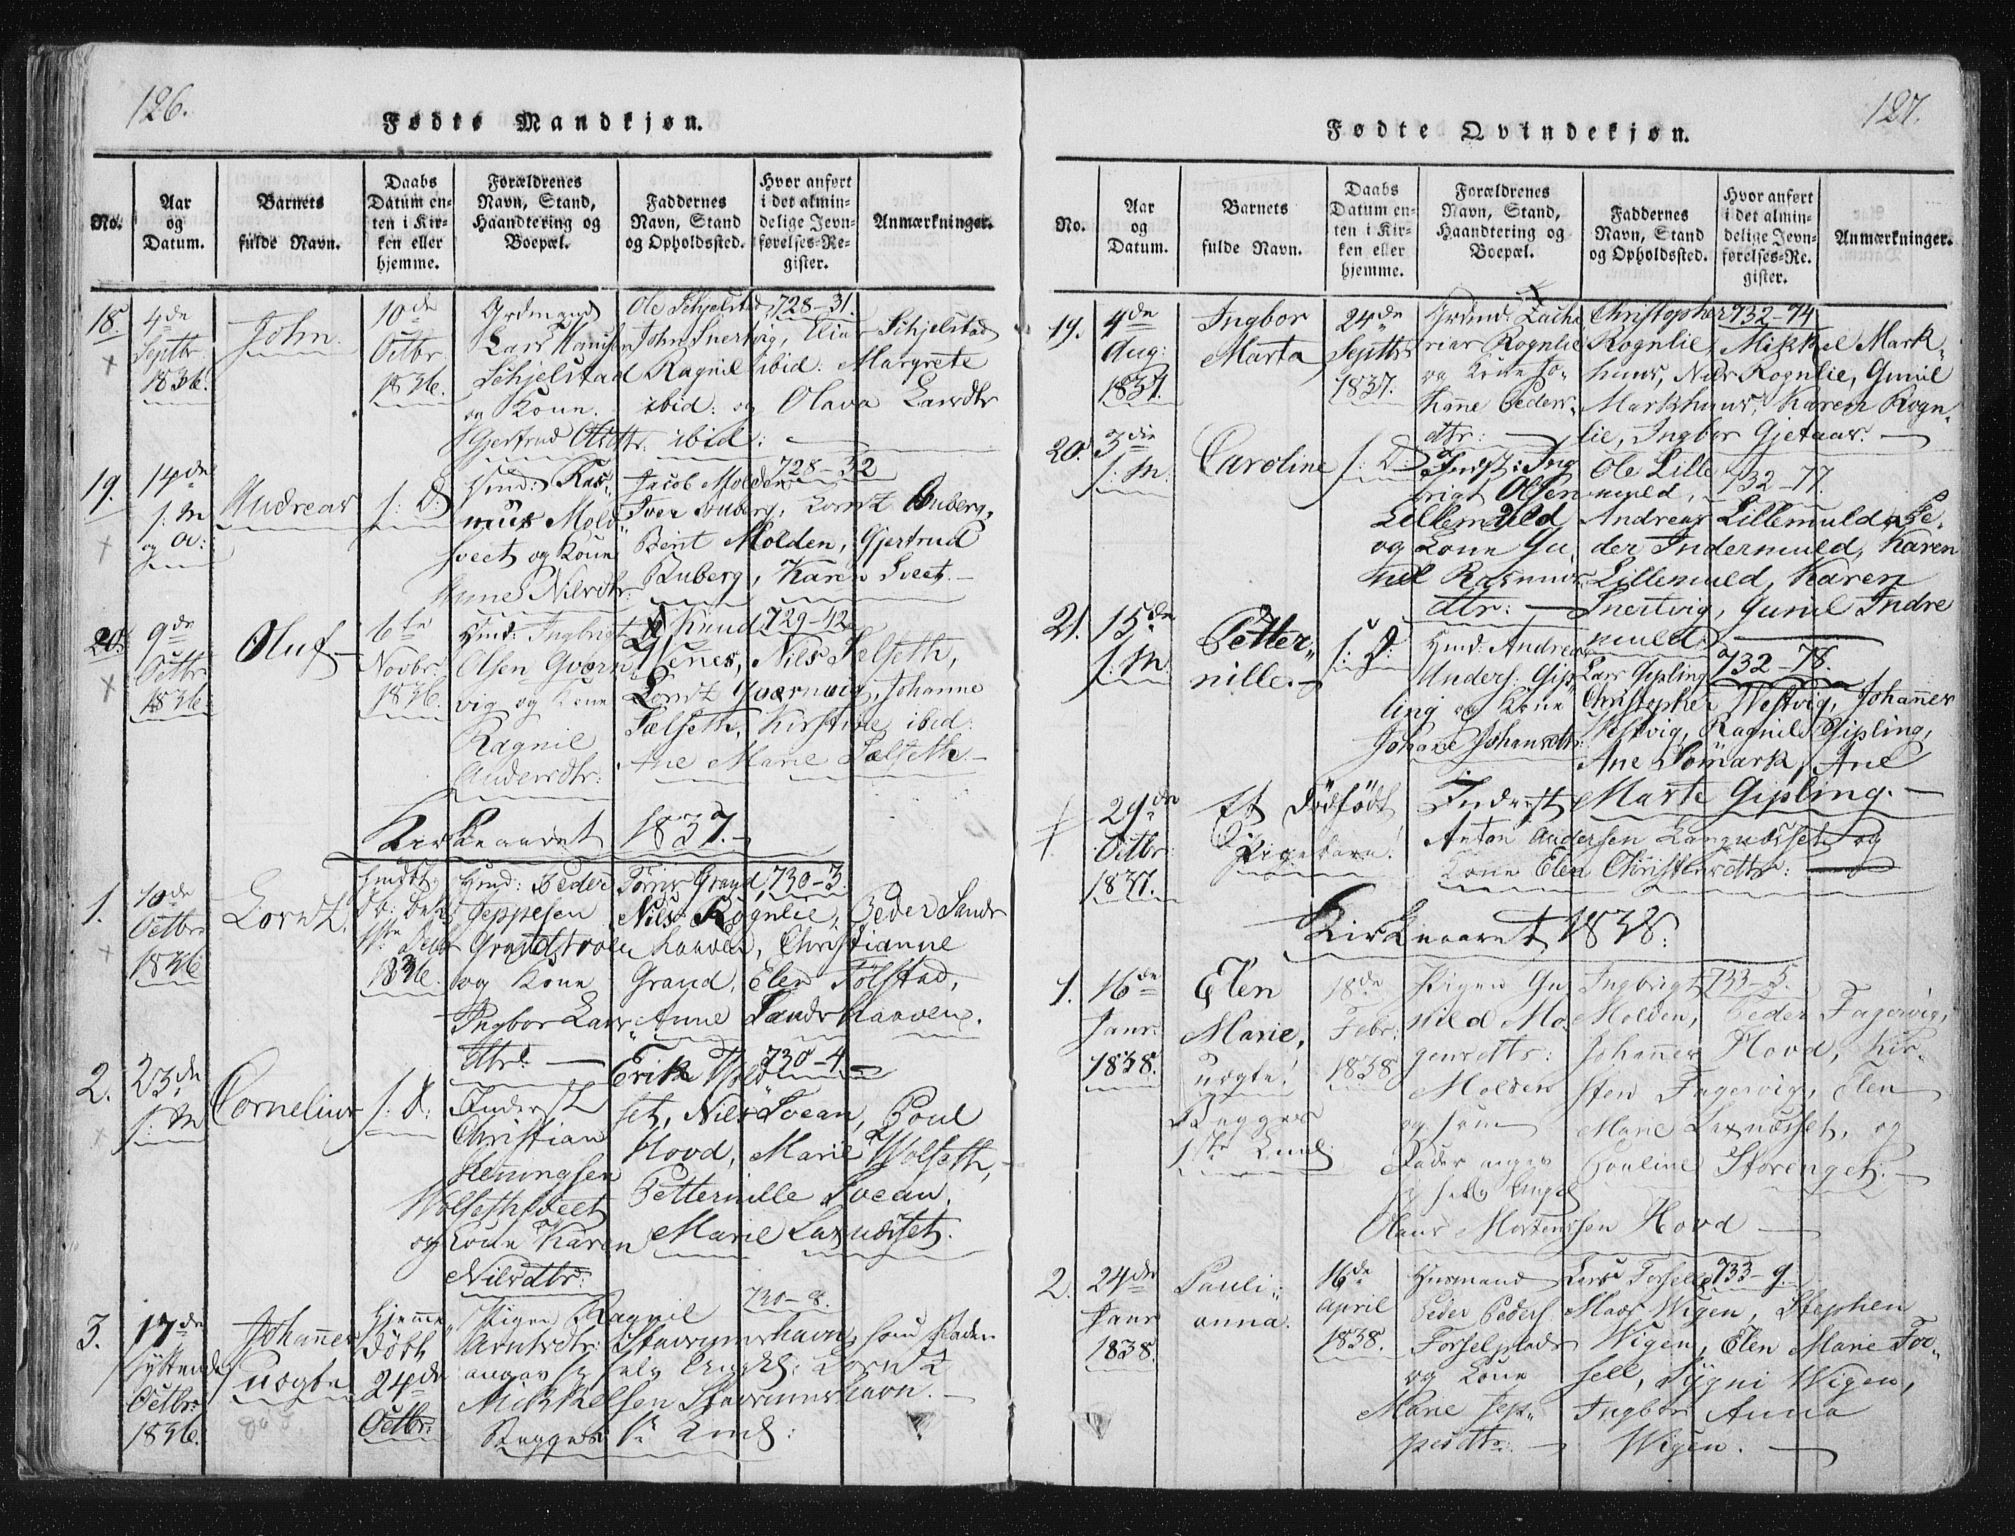 126.
Fødte Mandkjøn.
No.
Aar og Datum.
Barnets fulde Navn.
Daabs Datum enten i Kirken eller hjemme.
Forældrenes Navn, Stand, Haandtering og Boepæl.
Faddernes Navn, Stand og Opholdssted.
Hvor anført i det almindelige Jevnførelses-Register.
Anmærkninger.
18.
4de Septbr 1836.
John.
10de Octbr 1836.
Lars Hansen
Schjelstad
og Kone.
Gjertrud Olsdtr.
Ole Schjelstad, 728-31.
John Snertvig, Schjelstad
Ragnil ibid: Margrete
ibid: og Olava Larsdtr
ibid:
19.
14de s: M og A:
Andreas
s: D
Huusd: Rasmus
Moldsveet og Kone
Anne Nilsdtr.
Jacob Molden 728-32
Iver Buberg, Lornt Buberg,
Bent Molden, Gjertrud
Buberg, Karen Sveet.
20.
9de Octbr 1836.
Oluf
6te Novbr 1836.
Hmd: Ingbrigt
Olsen Qvernvig
og Kone
Ragnil
Andersdtr:
Knud 729-42
Venes, Nils Sælseth,
Lornt Qværnvig, Johanne
Sælseth, Kirstine ibid:
Ane Marie Sælseth
Kirkeaaret 1837.
1.
10de Octbr 1836
Lorntz.
11te Decbr 1836.
Hmd: Peder
Jeppesen
Grandstrøen
og Kone
Ingbor Larsdtr.
Tørris Grand, 730-3.
Nils Rognlie, Peder Sandshaaven, Christianne
Grand, Elen Tølstad,
Anne Sandshaaven.
2.
23de s: M
Cornelius
s: D:
Inderst
Christian
Henningsen
Wolsethsveet
og Kone Karen
Nilsdtr:
Erik 730-4
Nils Svean, Poul
Hovd, Marie Wolseth,
Petternille Svean,
Marie Laxnæsset.
3.
17de syttende Octbr: 1836.
Johannes uægte
Hjemmedøbt 24de Octbr:
Pigen Ragnil 730-8.
Arntsdtr: Stavrumshavn, som Fader
angav sig selv Ungk: Lornt
Mikkelsen Stavrumshavn.
Begges 1te Kind:
127.
Fødte Qvindekjøn.
No.
Aar og Datum.
Barnets fulde Navn.
Daabs Datum enten i Kirken eller hjemme.
Forældrenes Navn, Stand, Haandtering og Boepæl.
Faddernes Navn, Stand og Opholdssted.
Hvor anført i det almindelige Jevnførelses-Re-gister.
Anmærkninger.
19.
4de Aug: 1837.
Ingbor Marta
24de Septbr 1837.
Grdmd: Zacharias Rognlie
og Kone Johanne Pedersdtr:
Christopher 732-74
Rognlie, Mikkel Markhuus, Nils Rognlie, Gunil
Markhuus, Karen Rognlie, Ingbor Gjetaas.
20.
3die s: M.
Caroline
s: D
Indst: Ingbrigt Olsen
Lillemuld
og Kone Gunel Rasmusdtr:
Ole Lillemuld, 732-77.
Andreas Lillemuld, Peder Indermuld, Karen
Lillemuld, Karen
Snertvig, Gunil Indremuld.
21.
15de s: M
Petternille.
s: D:
Hmd: Andreas
Anders: Gipling og Kone
Johane Johansdtr:
732-78.
Lars Gipling
Christopher Westvig, Johannes
Westvig, Ragnild Gipling,
Ane Sømark, Ane
Marte Gipling.
29de Octbr: 1837.
Et Dødfødt Pigebarn!
Inderst
Anton Andersen Laxnæsset og
Kone Elen Christensdtr:
Kirkeaaret 1838.
1.
16de Janr 1838.
Elen Marie, uægte!
Begges 1ste Kind
18de Febr: 1838
Pigen Gunhild Mogensdtr:
Molden
og som Fader angav
sig selv Ungk
Olaus Mortenssen Hovd
Ingbrigt 733-5.
Molden, Peder Fagervig,
Johannes Hovd, Kirsten Fagervig, Elen
Marie Laxnæsset, og
Pauline Storenget.
2.
24de Janr 1838.
Paulianna.
16de April 1838.
Husmand
Peder Peders:
Forselplads
og Kone
Marie Jeppesdtr.
Lars Forsell 733-9.
Mads Wigen, Stephen
Wigen, Elen Marie Forsell, Sygni Wigen,
Ingbor Anna
Wigen.